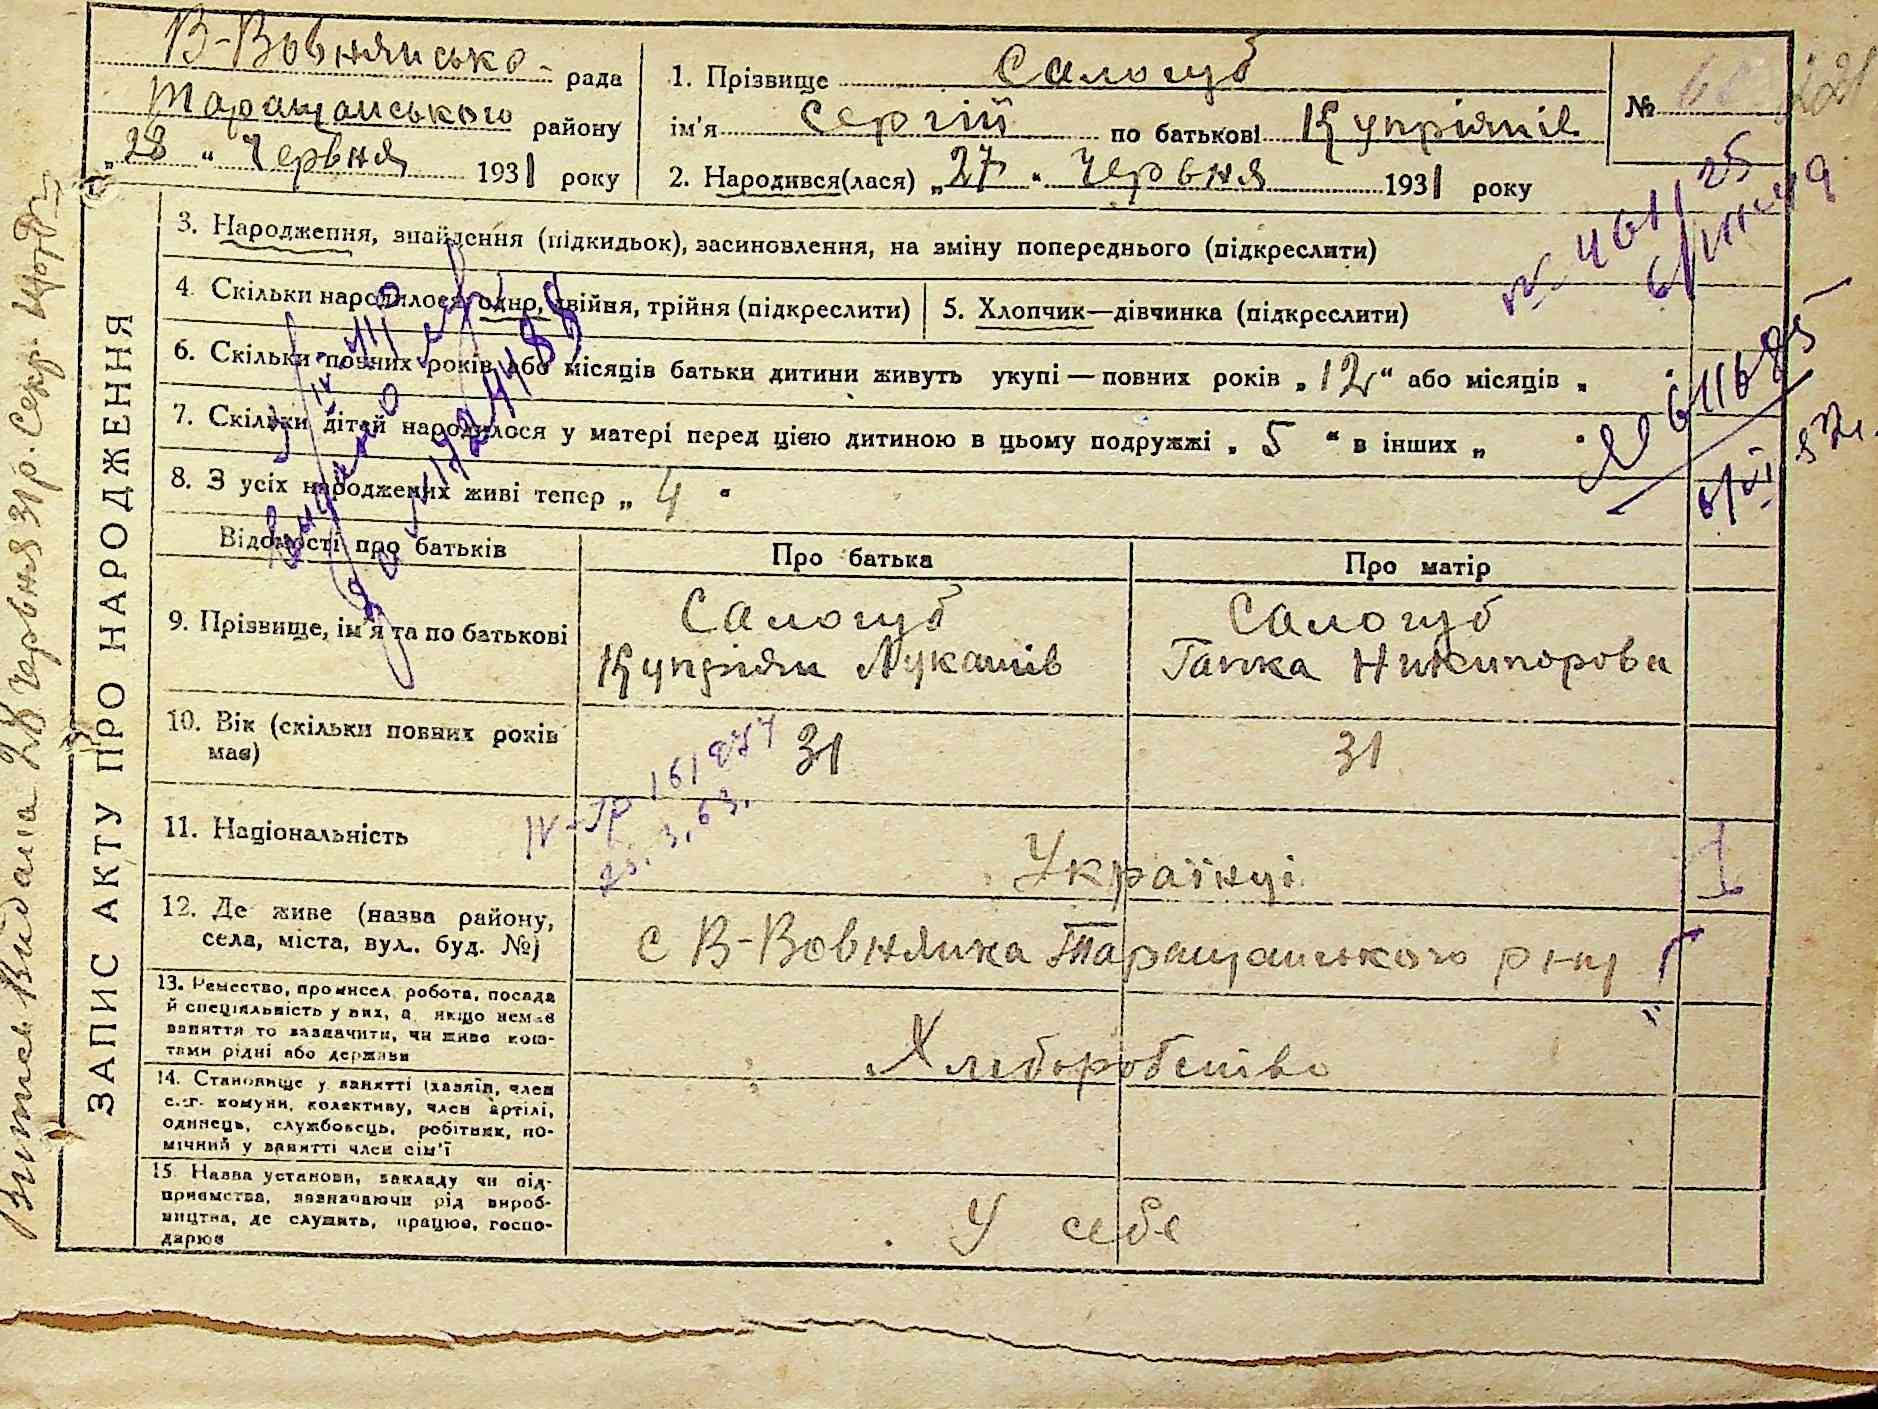 В-Вовнянсько- рада
Таращанського району
„28 “ Червня 1931 року
1. Прізвище Салогуб
ім'я Сергій по батькові Купріянів
2. Народився(лася) „27 “ Червня 1931 року
№
ЗАПИС АКТУ ПРО НАРОДЖЕННЯ
3. Народження, знайдення (підкидьок), засиновлення, на зміну попереднього (підкреслити)
4. Скільки народилося: одно, двійня, трійня (підкреслити)
5. Хлопчик—дівчинка (підкреслити)
6. Скільки повних років або місяців батьки дитини живуть укупі — повних років „ 12 “ або місяців „
7. Скільки дітей народилося у матері перед цією дитиною в цьому подружжі „ 5 “ в інших „
8. З усіх народжених живі тепер „ 4 “
Відомості про батьків
Про батька
Про матір
9. Прізвище, ім'я та по батькові
Салогуб
Купріян Лукашів
Салогуб
Гапка Никипорова
10. Вік (скільки повних років має)
31
31
11. Національність
Українці
12. Де живе (назва району, села, міста, вул., буд. №)
с В-Вовнянка Таращанського р-ну
13. Ремество, промисел, робота, посада й спеціяльність у них, а якщо немає заняття то зазначити, чи живе коштами рідні або держави
Хлеборобство
14. Становище у занятті (хазяїн, член с.-г. комуни, колективу, член артілі, одинець, службовець, робітник, помічний у занятті член сім'ї
15. Назва установи, закладу чи підприємства, зазначаючи рід виробництва, де служить, працює, господарює
У себе
Витяг Видала 28 Червня 31 р. Секр.
№ 461125
6/VIII 49
611685
6/VI 57 г.
IV-ЗР 161277
25.3.63.